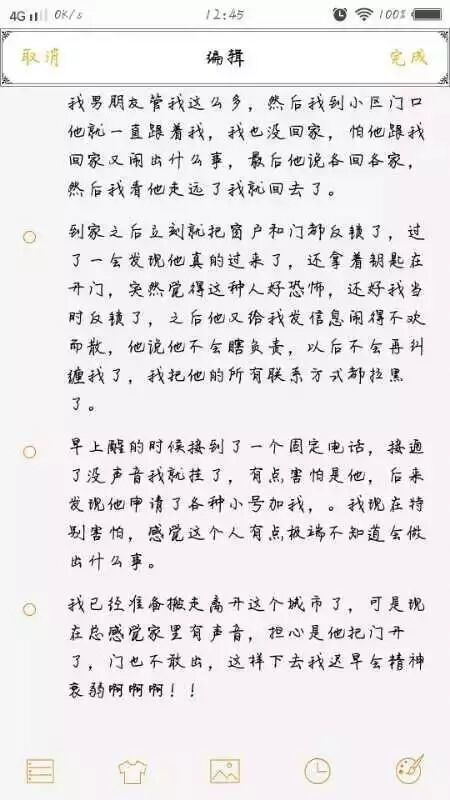 4G 0K/s 12:45 100%
取消 编辑 完成
我男朋友管我这么多，然后我到小区门口
他就一直跟着我，我也没回家，怕他跟我
回家又闹出什么事，最后他说各回各家，
然后我看他走远了我就回去了。
到家之后立刻就把窗户和门都反锁了，过
了一会发现他真的过来了，还拿着钥匙在
开门，突然觉得这种人好恐怖，还好我当
时反锁了，之后他又给我发信息闹得不欢
而散，他说他不会瞎负责，以后不会再纠
缠我了，我把他的所有联系方式都拉黑
了。
早上醒的时候接到了一个固定电话，接通
了没声音我就挂了，有点害怕是他，后来
发现他申请了各种小号加我，。我现在特
别害怕，感觉这个人有点极端不知道会做
出什么事。
我已经准备搬走离开这个城市了，可是现
在总感觉家里有声音，担心是他把门开
了，门也不敢出，这样下去我迟早会精神
衰弱啊啊啊！！